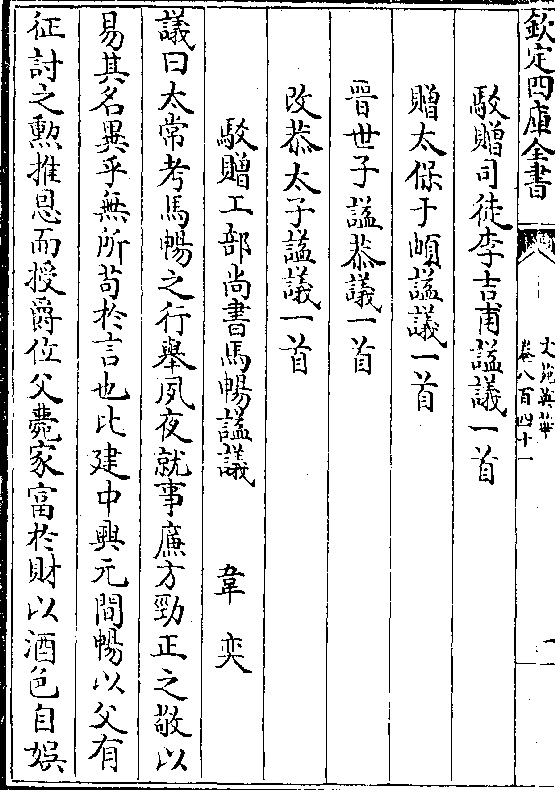 欽定四庫全書
文苑英華
卷八百四十一
一
駁贈司徒李吉甫謚議一首
贈太保于頔謚議一首
晉世子謚恭議一首
改恭太子謚議一首
駁贈工部尚書馬暢謚議 韋奕
議曰太常考馬暢之行舉夙夜就事廉方勁正之敬以
易其名異乎無所苟於言也比建中興元間暢以父有
征討之勲推恩而授爵位父薨家富於財以酒色自娱